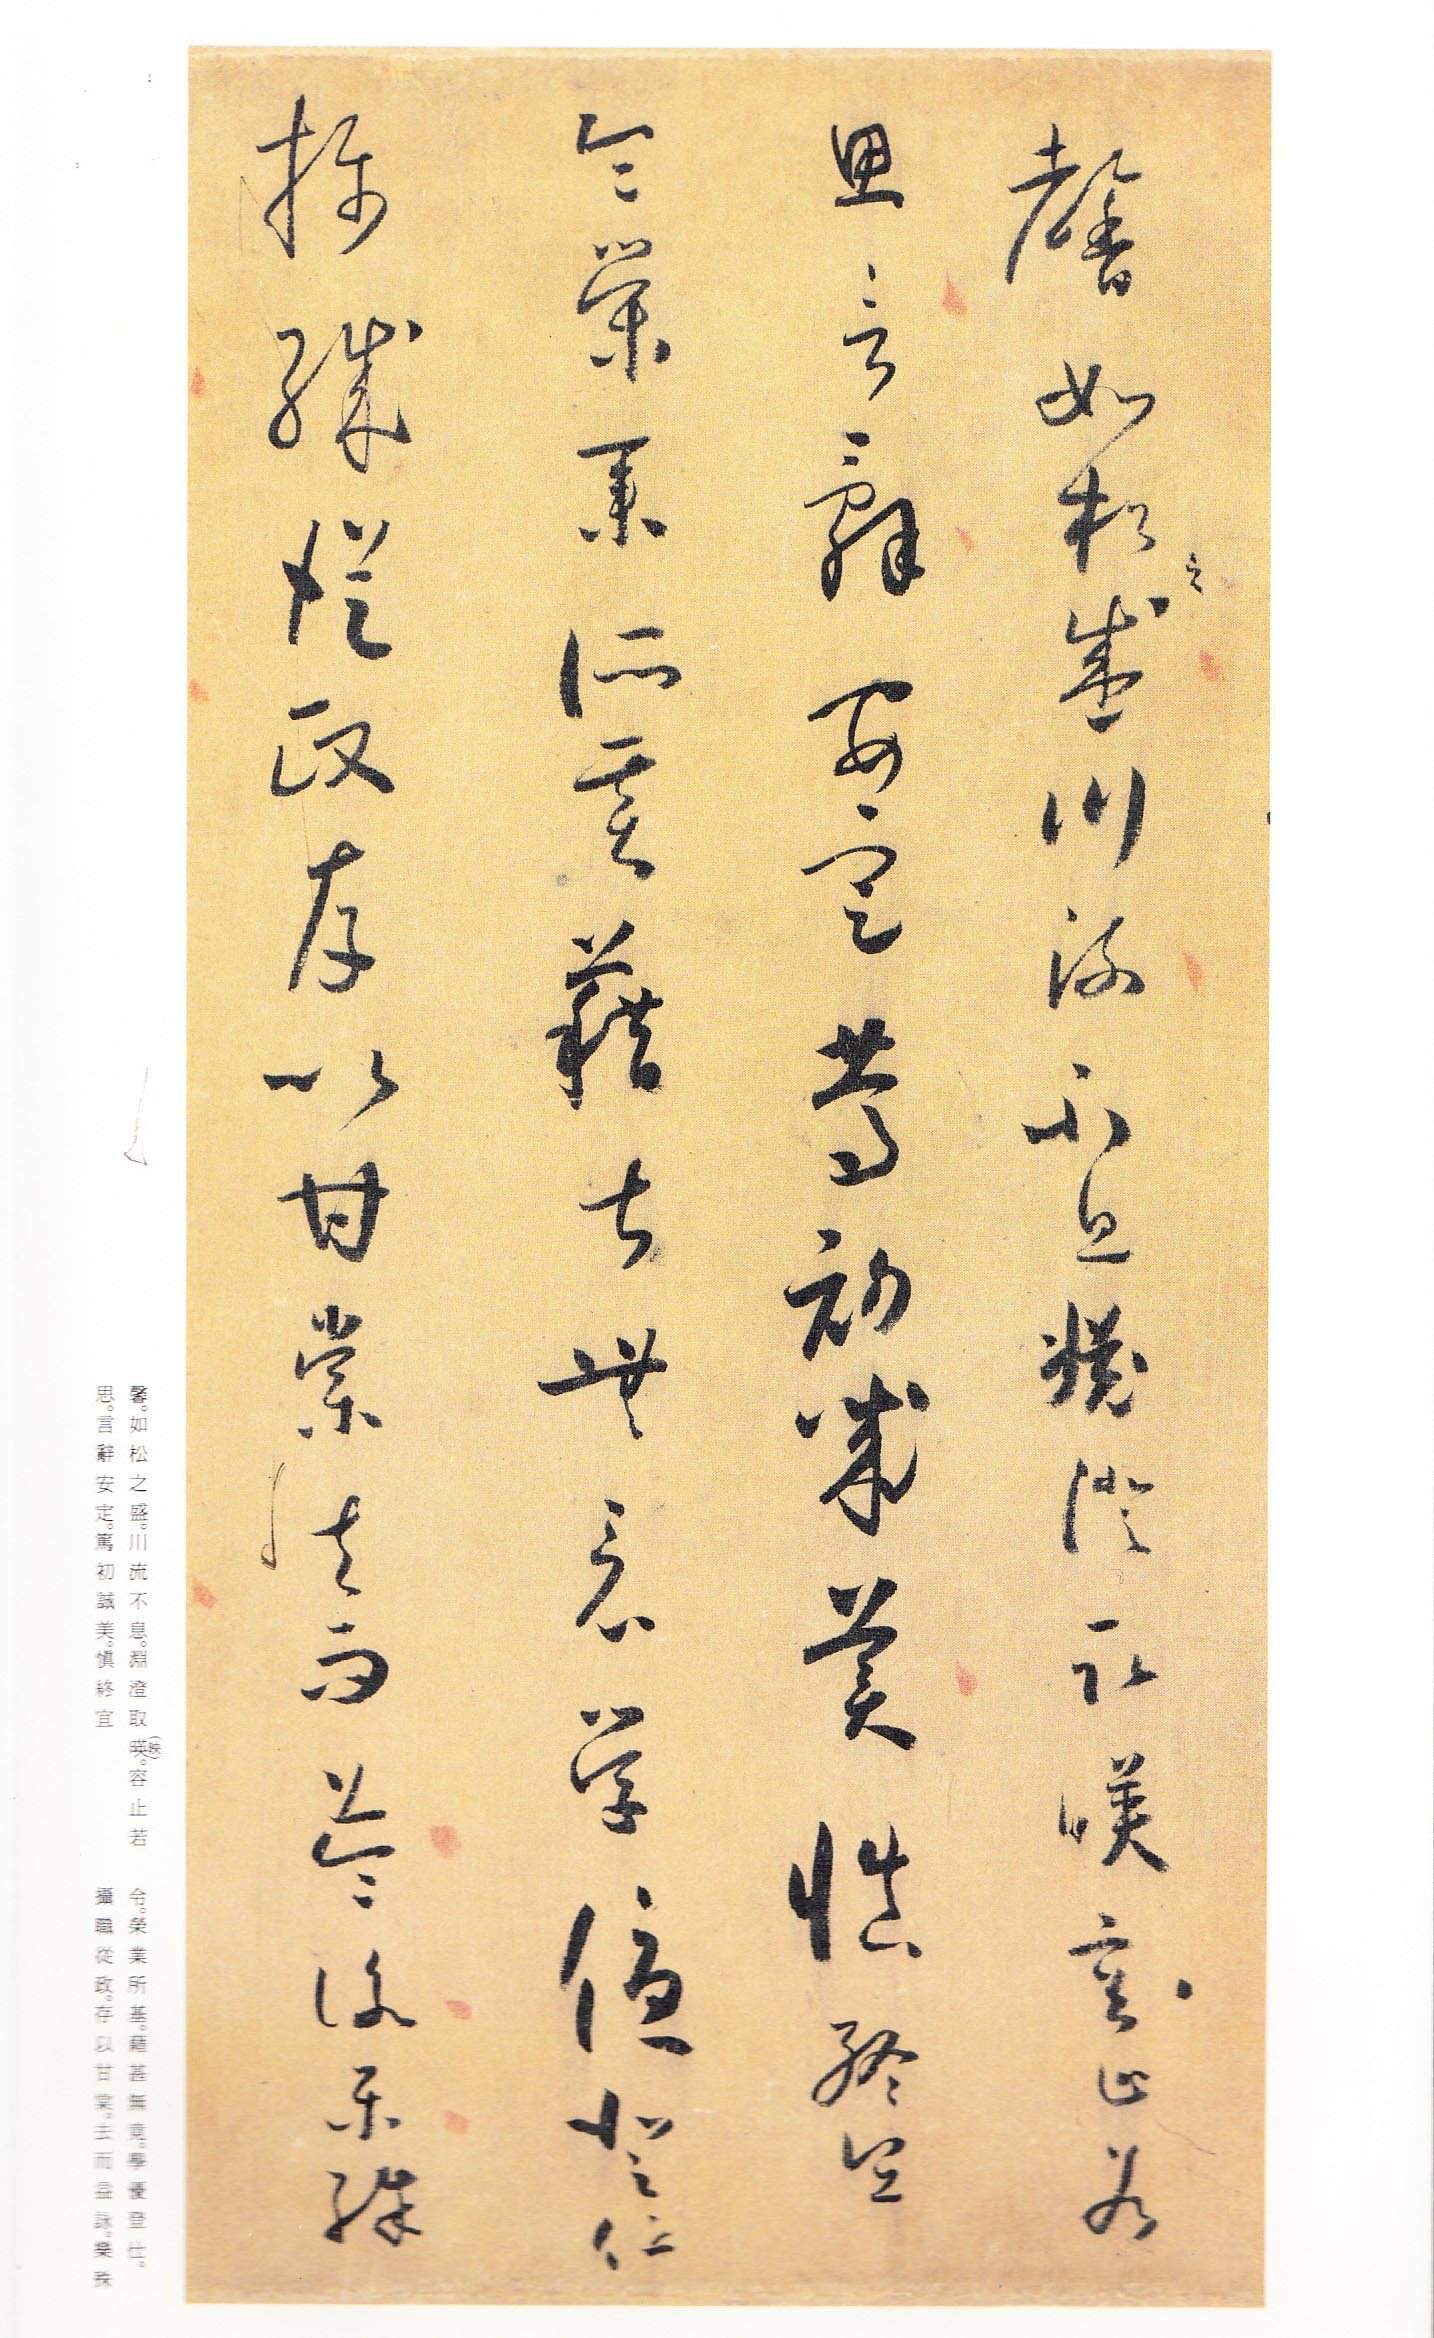 馨如松之盛川流不息淵澄取暎容止若
思言辭安定篤初誠美慎終宜
令榮業所基藉甚無竟學優登仕
攝職從政存以甘棠去而益詠樂殊
馨。如松之盛。川流不息。淵澄取暎(映)。容止若
思。言辭安定。篤初誠美。慎終宜
令。榮業所基。藉甚無竟。學優登仕。
攝職從政。存以甘棠。去而益詠。樂殊